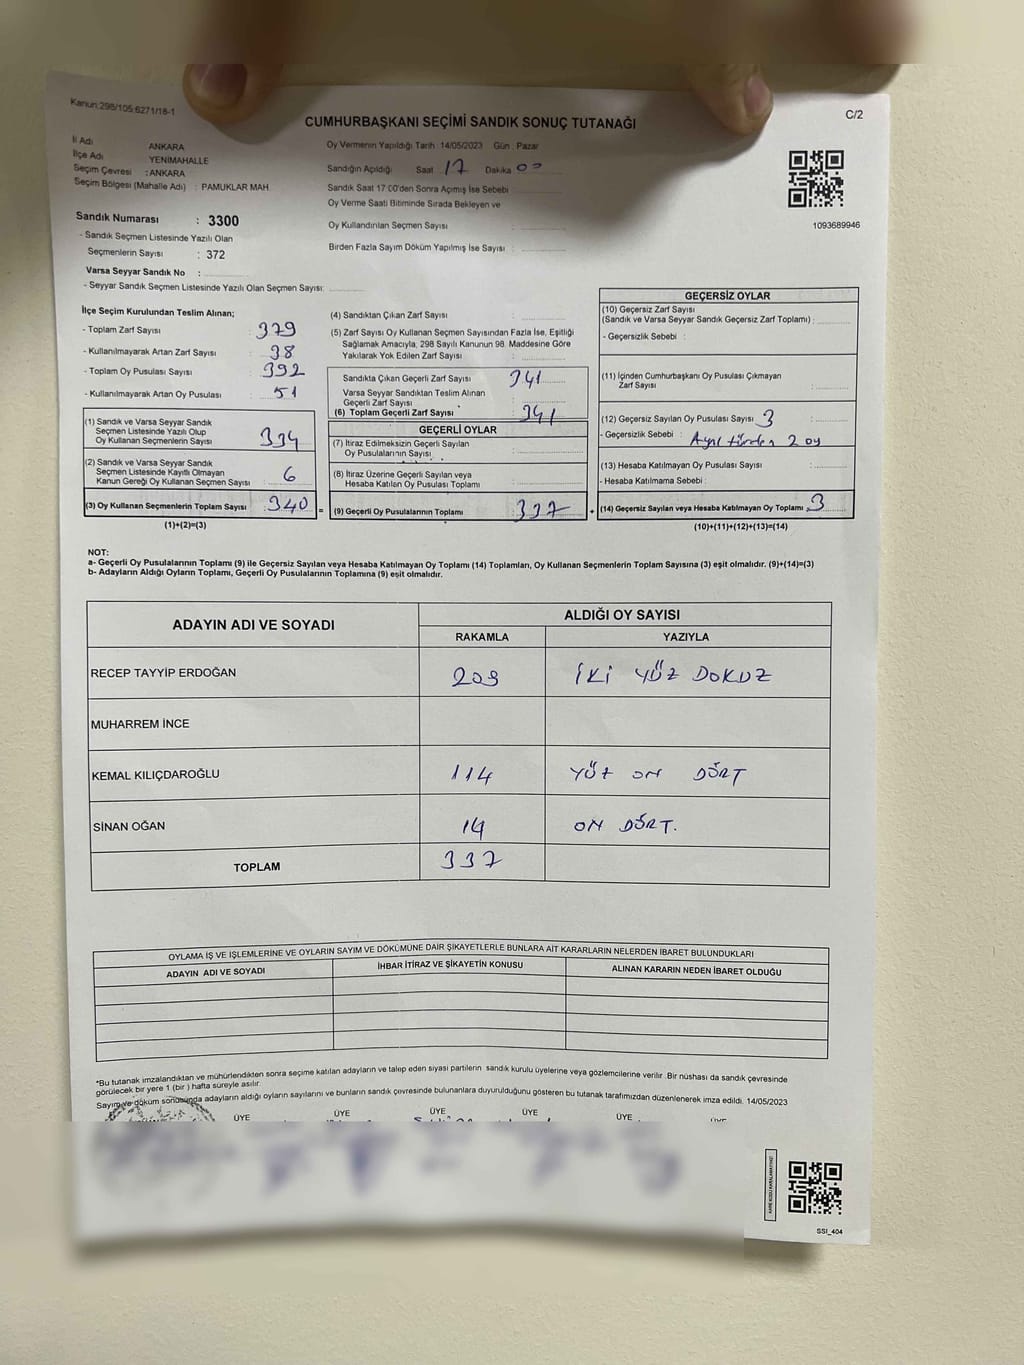 Kanun:298/105,6271/18-1
CUMHURBAŞKANI SEÇİMİ SANDIK SONUÇ TUTANAĞI
C/2
İl Adı ANKARA
İlçe Adı YENİMAHALLE
Seçim Çevresi : ANKARA
Seçim Bölgesi (Mahalle Adı) : PAMUKLAR MAH
Oy Vermenin Yapıldığı Tarih : 14/05/2023 Gün : Pazar
Sandığın Açıldığı Saat 17 Dakika 00
Sandık Saat 17:00'den Sonra Açımış İse Sebebi
Oy Verme Saati Bitiminde Sırada Bekleyen ve
Oy Kullandırılan Seçmen Sayısı :
Birden Fazla Sayım Döküm Yapılmış İse Sayısı :
1093689946
Sandık Numarası : 3300
- Sandık Seçmen Listesinde Yazılı Olan
Seçmenlerin Sayısı : 372
Varsa Seyyar Sandık No :
- Seyyar Sandık Seçmen Listesinde Yazılı Olan Seçmen Sayısı:
İlçe Seçim Kurulundan Teslim Alınan;
- Toplam Zarf Sayısı : 379
- Kullanılmayarak Artan Zarf Sayısı : 38
- Toplam Oy Pusulası Sayısı : 392
- Kullanılmayarak Artan Oy Pusulası : 51
(1) Sandık ve Varsa Seyyar Sandık
Seçmen Listesinde Yazılı Olup
Oy Kullanan Seçmenlerin Sayısı : 334
(2) Sandık ve Varsa Seyyar Sandık
Seçmen Listesinde Kayıtlı Olmayan
Kanun Gereği Oy Kullanan Seçmen Sayısı : 6
(3) Oy Kullanan Seçmenlerin Toplam Sayısı : 340
(1)+(2)=(3)
(4) Sandıktan Çıkan Zarf Sayısı :
(5) Zarf Sayısı Oy Kullanan Seçmen Sayısından Fazla İse, Eşitliği
Sağlamak Amacıyla; 298 Sayılı Kanunun 98. Maddesine Göre
Yakılarak Yok Edilen Zarf Sayısı :
Sandıkta Çıkan Geçerli Zarf Sayısı : 341
Varsa Seyyar Sandıktan Teslim Alınan
Geçerli Zarf Sayısı :
(6) Toplam Geçerli Zarf Sayısı : 341
GEÇERLİ OYLAR
(7) İtiraz Edilmeksizin Geçerli Sayılan
Oy Pusulalarının Sayısı :
(8) İtiraz Üzerine Geçerli Sayılan veya
Hesaba Katılan Oy Pusulası Toplamı :
= (9) Geçerli Oy Pusulalarının Toplamı : 337
GEÇERSİZ OYLAR
(10) Geçersiz Zarf Sayısı
(Sandık ve Varsa Seyyar Sandık Geçersiz Zarf Toplamı) :
- Geçersizlik Sebebi :
(11) İçinden Cumhurbaşkanı Oy Pusulası Çıkmayan
Zarf Sayısı :
(12) Geçersiz Sayılan Oy Pusulası Sayısı : 3
- Geçersizlik Sebebi : Aynı türden 2 oy
(13) Hesaba Katılmayan Oy Pusulası Sayısı :
- Hesaba Katılmama Sebebi :
+ (14) Geçersiz Sayılan veya Hesaba Katılmayan Oy Toplamı : 3
(10)+(11)+(12)+(13)=(14)
NOT:
a- Geçerli Oy Pusulalarının Toplamı (9) ile Geçersiz Sayılan veya Hesaba Katılmayan Oy Toplamı (14) Toplamları, Oy Kullanan Seçmenlerin Toplam Sayısına (3) eşit olmalıdır. (9)+(14)=(3)
b- Adayların Aldığı Oyların Toplamı, Geçerli Oy Pusulalarının Toplamına (9) eşit olmalıdır.
ADAYIN ADI VE SOYADI
ALDIĞI OY SAYISI
RAKAMLA YAZIYLA
RECEP TAYYİP ERDOĞAN 209 İKİ YÜZ DOKUZ
MUHARREM İNCE
KEMAL KILIÇDAROĞLU 114 YÜZ ON DÖRT
SİNAN OĞAN 14 ON DÖRT.
TOPLAM 337
OYLAMA İŞ VE İŞLEMLERİNE VE OYLARIN SAYIM VE DÖKÜMÜNE DAİR ŞİKAYETLERLE BUNLARA AİT KARARLARIN NELERDEN İBARET BULUNDUKLARI
ADAYIN ADI VE SOYADI İHBAR İTİRAZ VE ŞİKAYETİN KONUSU ALINAN KARARIN NEDEN İBARET OLDUĞU
*Bu tutanak imzalandıktan ve mühürlendikten sonra seçime katılan adayların ve talep eden siyasi partilerin sandık kurulu üyelerine veya gözlemcilerine verilir .Bir nüshası da sandık çevresinde
görülecek bir yere 1 (bir ) hafta süreyle asılır.
Sayım ve döküm sonucunda adayların aldığı oyların sayılarını ve bunların sandık çevresinde bulunanlara duyurulduğunu gösteren bu tutanak tarafımızdan düzenlenerek imza edildi. 14/05/2023
ÜYE ÜYE ÜYE ÜYE ÜYE ÜYE
SSI_404